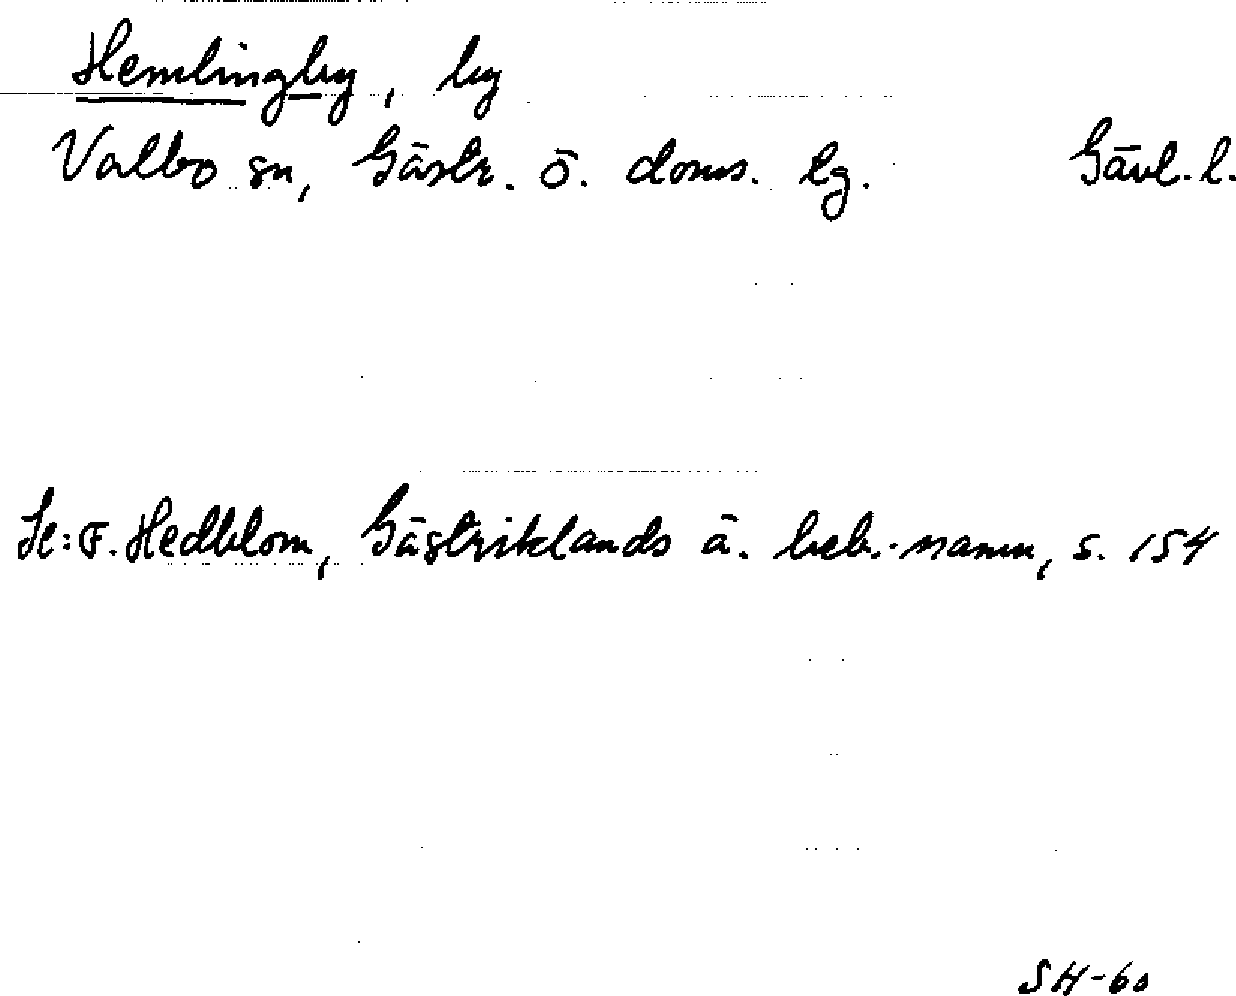 Hemlingby, by
Valbo sn, Gästr. ö. doms. lg. Gävl. l.
Se: F. Hedblom, Gästriklands ä. beb.-namn, s. 154
SH-60